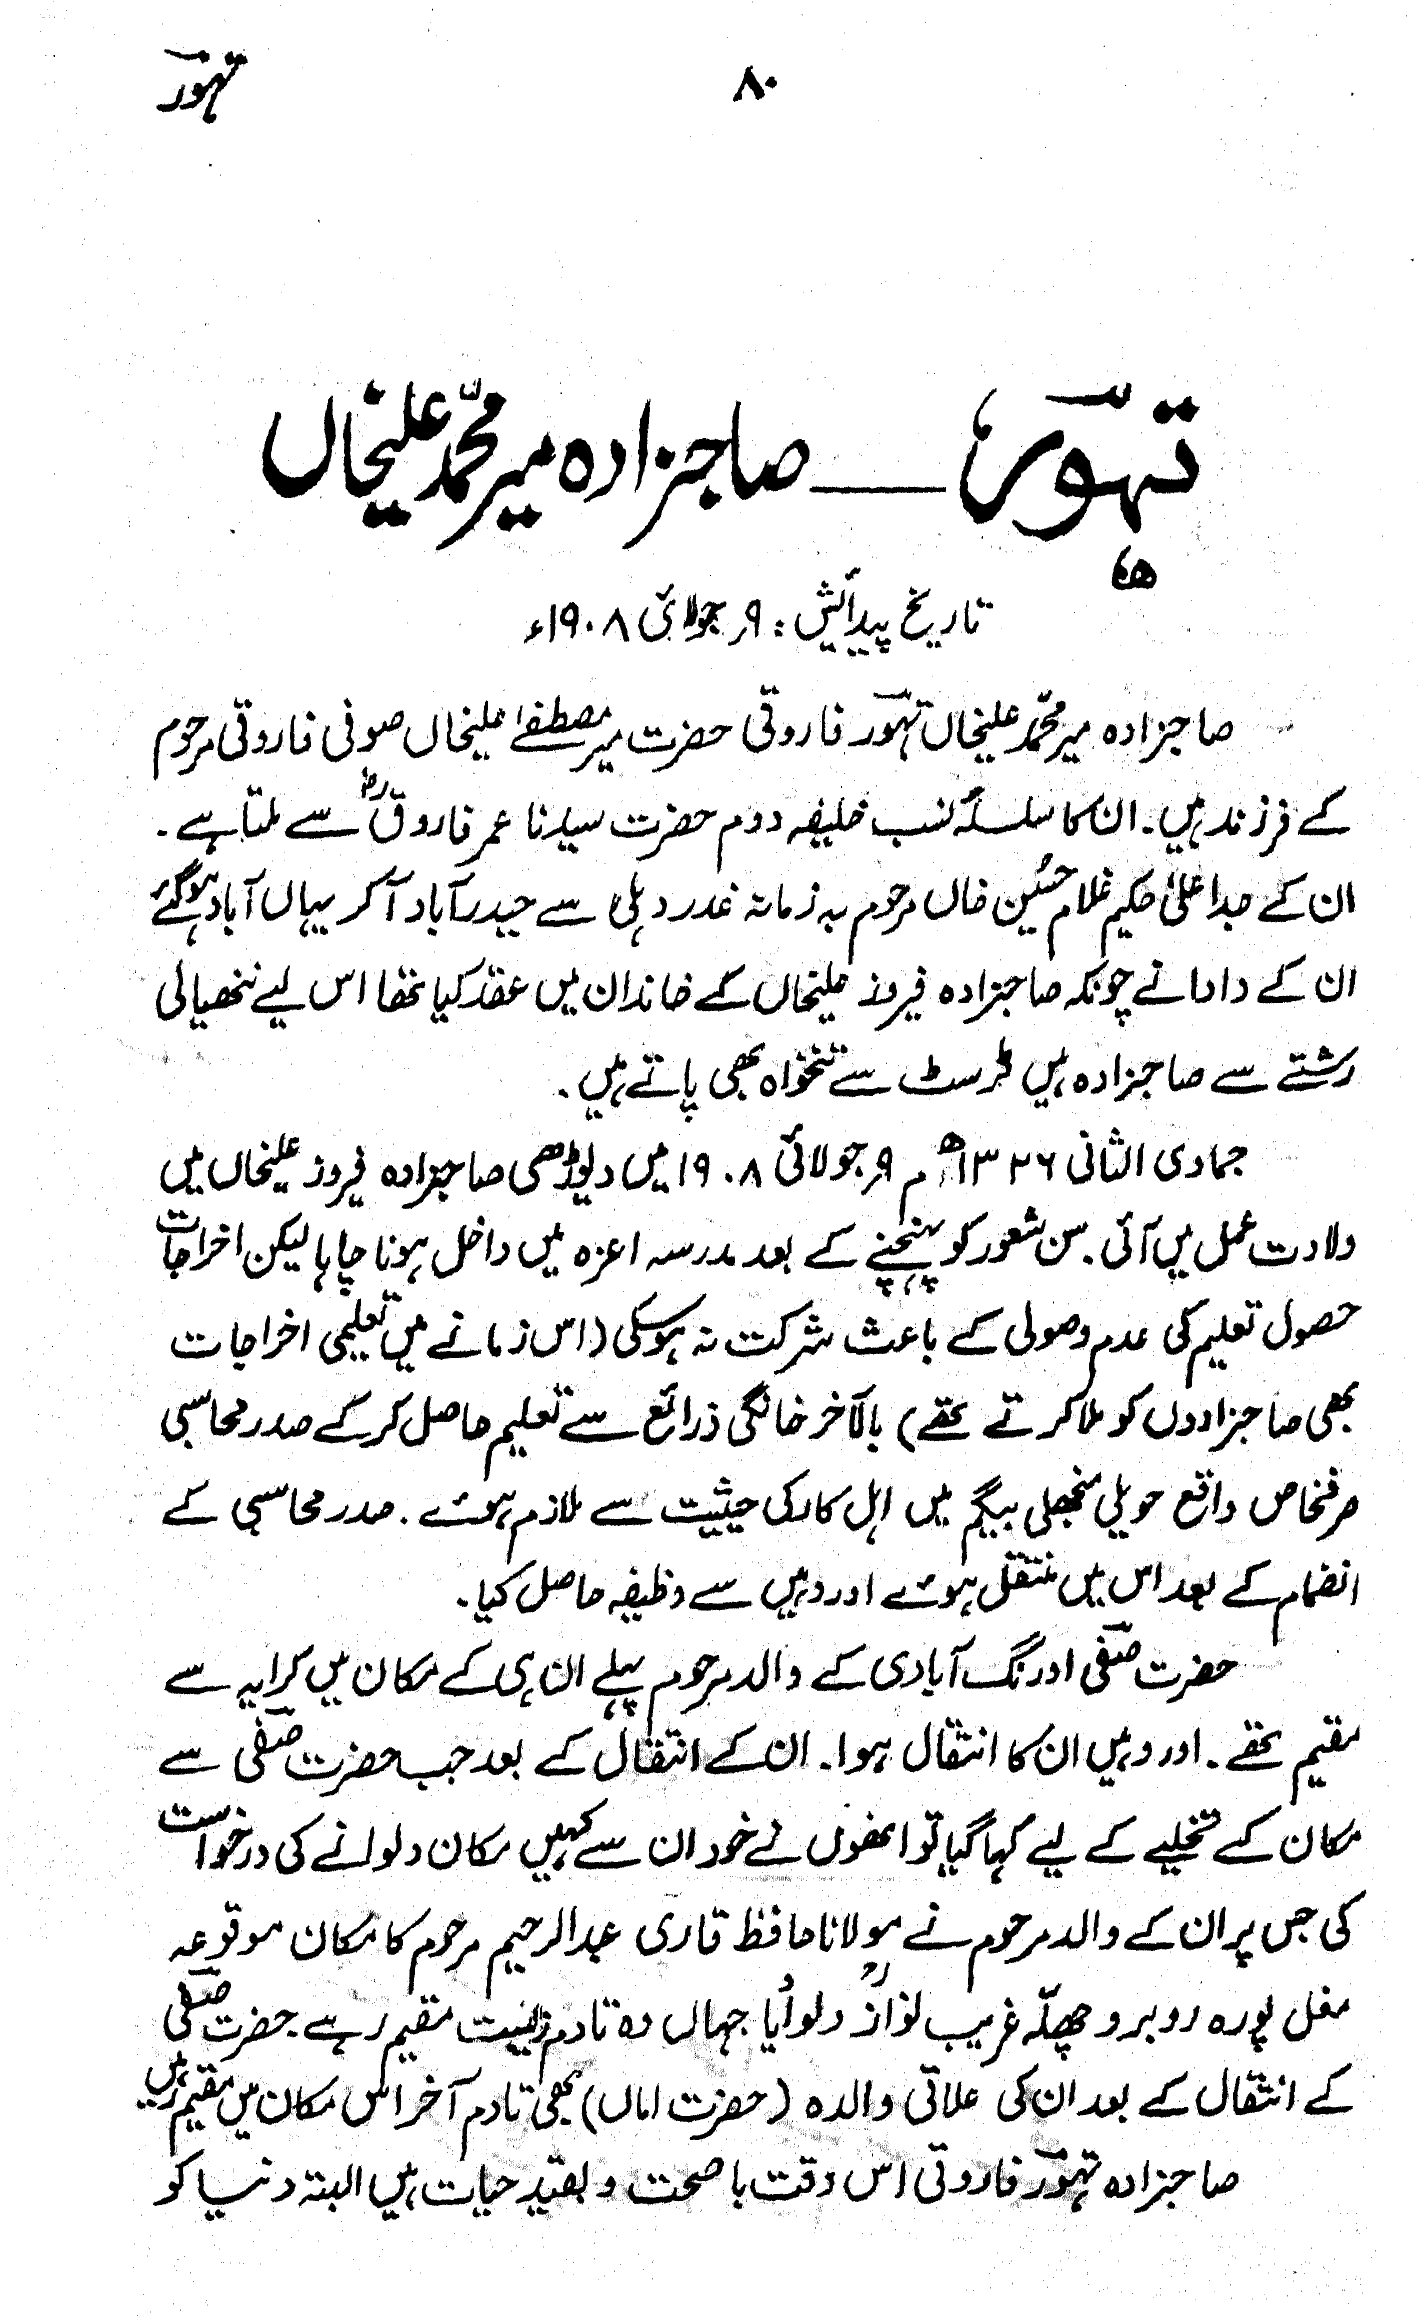 تہوّر
۸۰
تہوّر ـــــ صاجزادہ میر محمّد علیخاں
تاریخ پیدائش : ۹ر جولائی ۱۹۰۸ء
صاجزادہ میر محمّد علیخاں تہوّر فاروقی حضرت میر مصطفےٰ علیخاں صوفی فاروقی مرحوم
کے فرزند ہیں۔ ان کا سلسلۂ نسب خلیفہ دوم حضرت سیدنا عمر فاروقؓ سے ملتا ہے۔
ان کے جد اعلیٰ حکیم غلام حسُین خاں مرحوم بہ زمانہ غدر دہلی سے حیدرآباد آ کر یہاں آباد ہوگئے
ان کے دادا نے چونکہ صاجزادہ فیروز علیخاں کے خاندان میں عقد کیا تھا اس لیے ننھیالی
رشتے سے صاجزادہ ہیں ٹرسٹ سے تنخواہ بھی پاتے ہیں۔
جمادی الثانی ۱۳۲۶ھ م ۹ر جولائی ۱۹۰۸ میں دیوڑھی صاجزادہ فیروز علیخاں میں
ولادت عمل میں آئی۔ سن شعور کو پہنچنے کے بعد مدرسہ اعزہ میں داخل ہونا چاہا لیکن اخراجات
حصول تعلیم کی عدم وصولی کے باعث شرکت نہ ہوسکی (اس زمانے میں تعلیمی اخراجات
بھی صاجزادوں کو ملا کرتے تھے) بالآخر خانگی ذرائع سے تعلیم حاصل کر کے صدر محاسبی
صرفخاص واقع حویلی منجھلی بیگم میں اہل کار کی حیثیت سے ملازم ہوئے۔ صدر محاسبی کے
انضمام کے بعد اس میں منتقل ہوئے اور وہیں سے وظیفہ حاصل کیا۔
حضرت صفیؔ اورنگ آبادی کے والد مرحوم پہلے ان ہی کے مکان میں کرایہ سے
مقیم تھے۔ اور وہیں ان کا انتقال ہوا۔ ان کے انتقال کے بعد جب حضرت صفیؔ سے
مکان کے تخلیے کے لیے کہا گیا تو انھوں نے خود ان سے کہیں مکان دلوانے کی درخواست
کی جس پر ان کے والد مرحوم نے مولانا حافظ قاری عبدالرحیم مرحوم کا مکان موقوعہ
مغل پورہ روبرو چھلّہ غریب نوازؒ دلوایا جہاں وہ تادم زیست مقیم رہے حضرت صفیؔ
کے انتقال کے بعد ان کی علاتی والدہ (حضرت اماں) بھی تادم آخر اس مکان میں مقیم رہیں
صاجزادہ تہوّر فاروقی اس وقت با صحت و بقید حیات ہیں البتہ دنیا کو